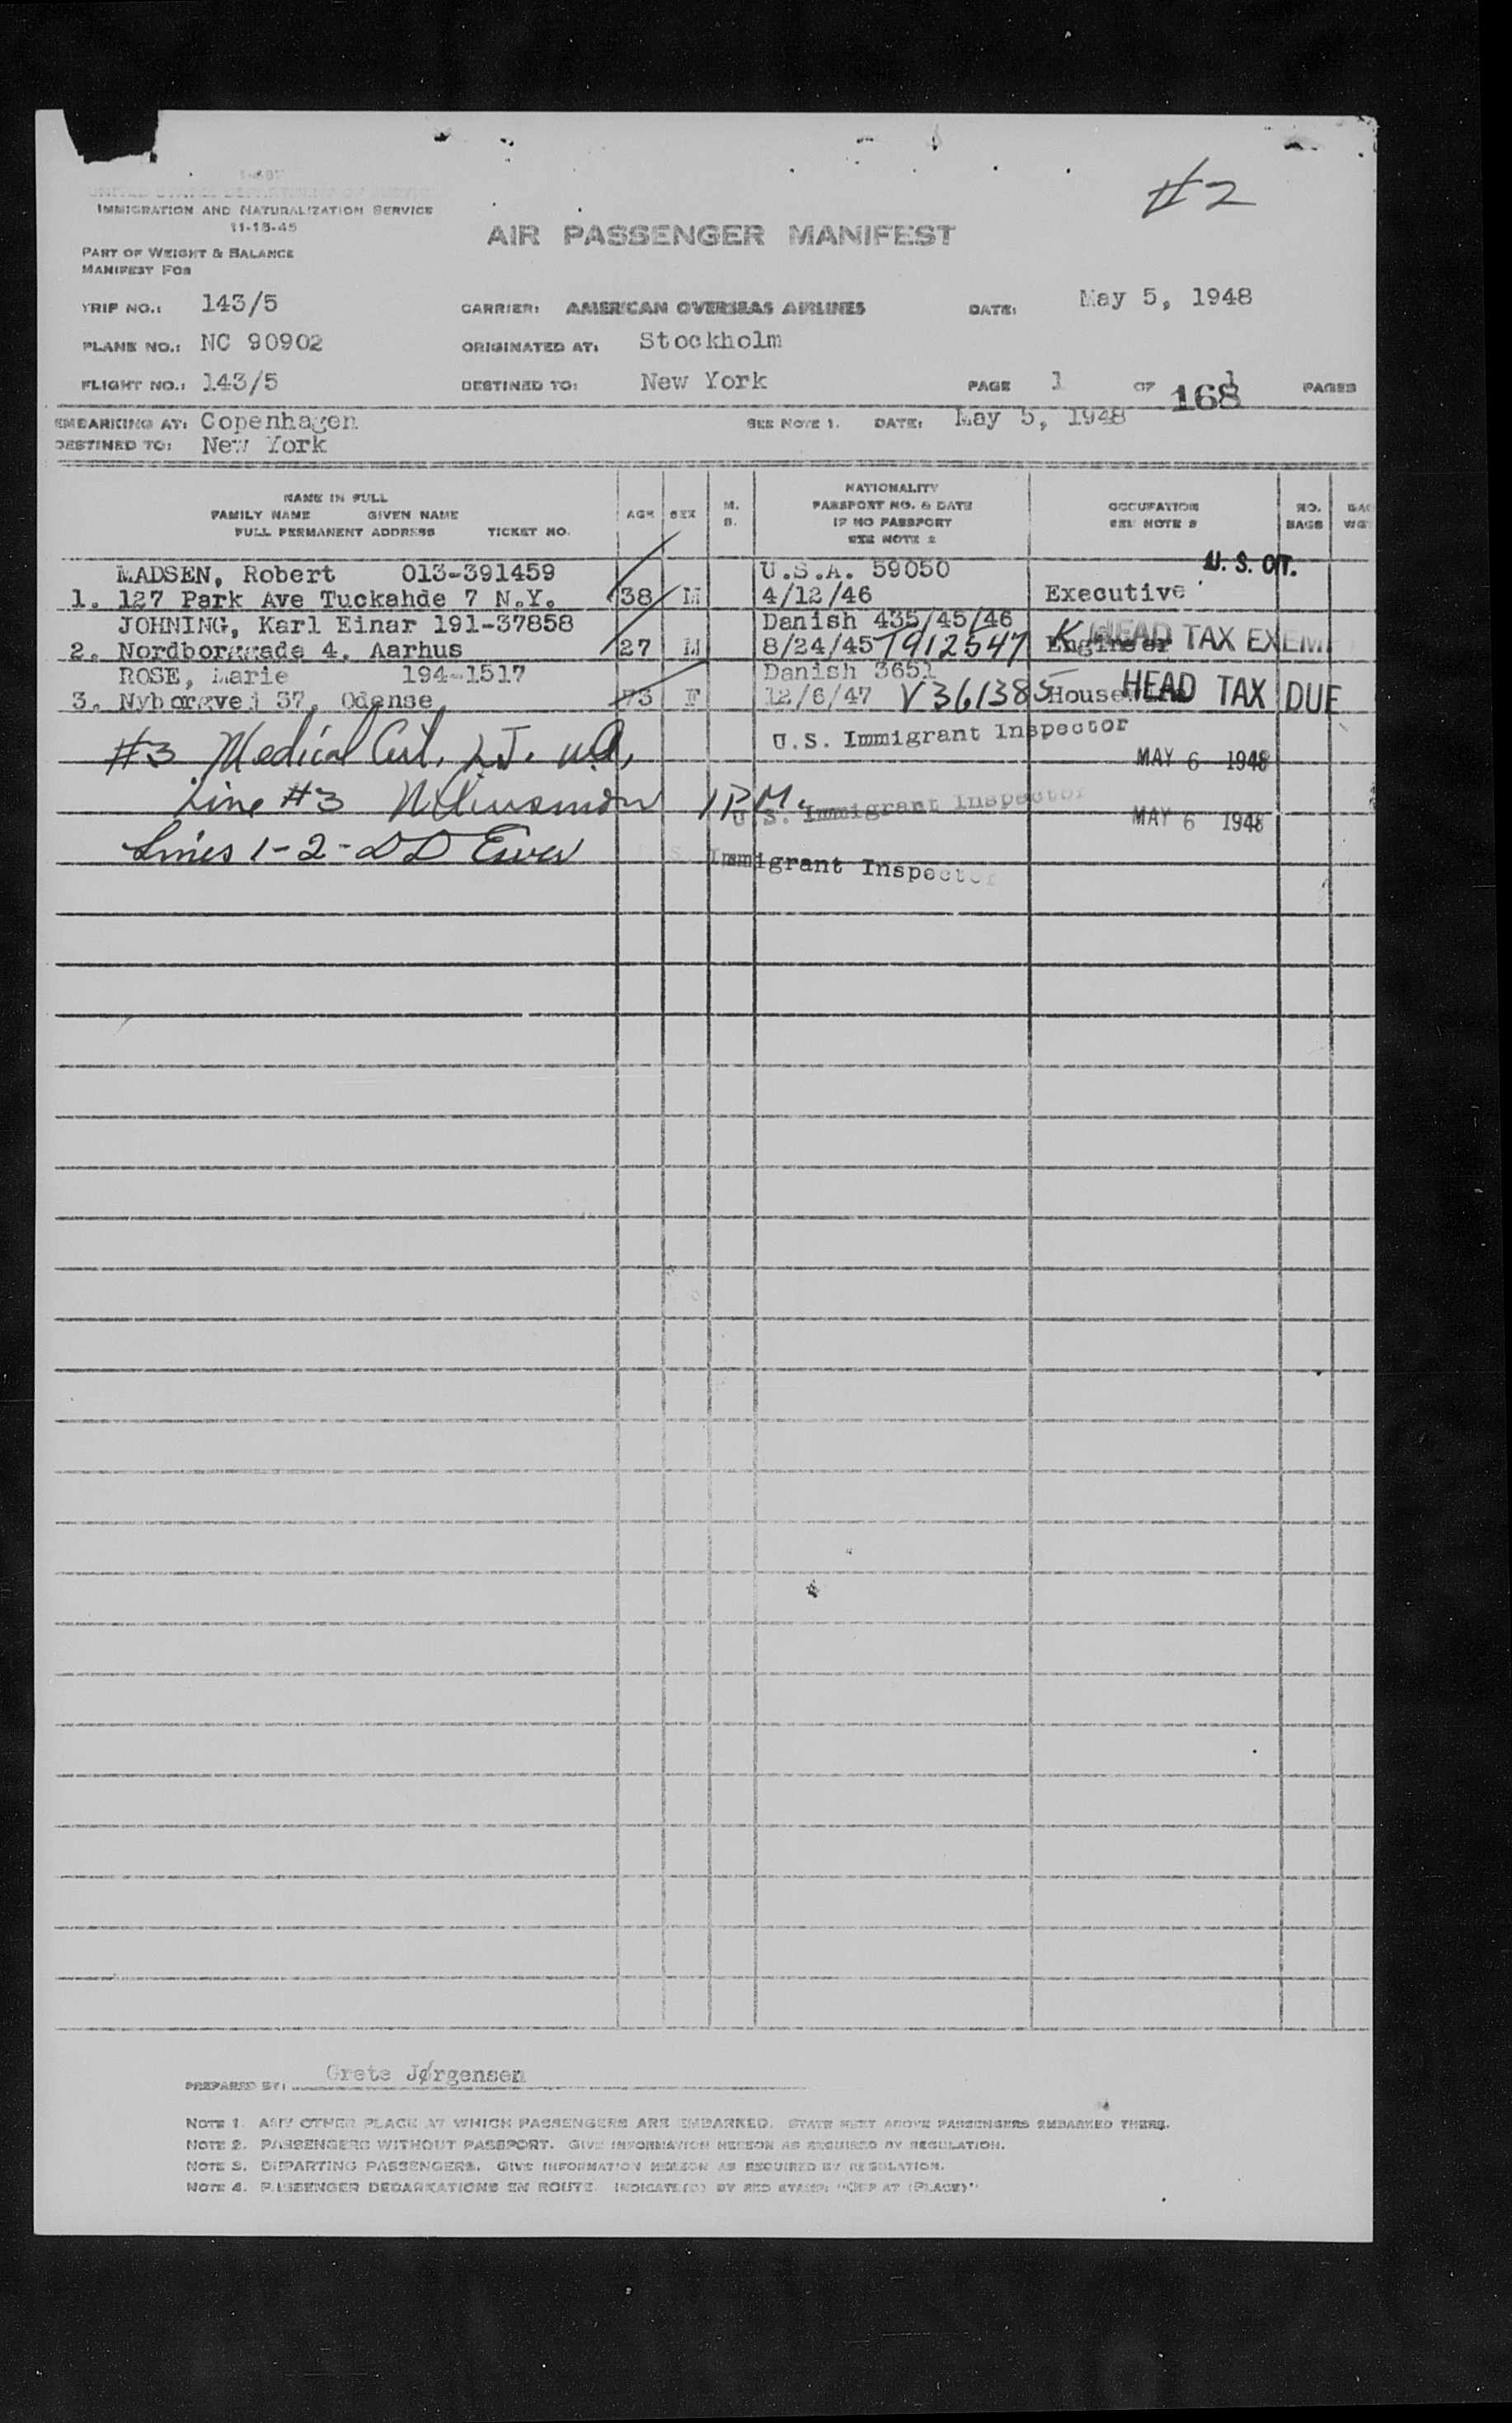 #2
IMMIGRATION AND NATURALIZATION SERVICE
11-15-45
AIR PASSENGER MANIFEST
PART OF WEIGHT & BALANCE
MANIFEST FOR
TRIP NO.: 143/5 CARRIER: AMERICAN OVERSEAS AIRLINES DATE: May 5, 1948
PLANE NO.: NC 90902 ORIGINATED AT: Stockholm
FLIGHT NO.: 143/5 DESTINED TO: New York PAGE 1 OF 1 PAGES
168
EMBARKING AT: Copenhagen SEE NOTE 1. DATE: May 5, 1948
DESTINED TO: New York
NAME IN FULL
FAMILY NAME GIVEN NAME
FULL PERMANENT ADDRESS TICKET NO.
AGE SEX M. S.
NATIONALITY
PASSPORT NO. & DATE
IF NO PASSPORT
SEE NOTE 2
OCCUPATION
SEE NOTE 3
NO. BAGS
MADSEN, Robert 013-391459 U.S.A. 59050 U.S. CIT.
1. 127 Park Ave Tuckahde 7 N.Y. 38 M 4/12/46 Executive
JOHNING, Karl Einar 191-37858 Danish 435/45/46
2. Nordborggade 4, Aarhus 27 M 8/24/45 T912547 Engineer HEAD TAX EXEM
ROSE, Marie 194-1517 Danish 3651
3. Nyborgvej 37, Odense 73 F 12/6/47 V361385 House HEAD TAX DUE
#3 Medical Cert.
U.S. Immigrant Inspector
MAY 6 1948
Line #3
U.S. Immigrant Inspector
MAY 6 1948
Lines 1-2-
Immigrant Inspector
PREPARED BY: Grete Jørgensen
NOTE 1. ANY OTHER PLACE AT WHICH PASSENGERS ARE EMBARKED. STATE NEXT ABOVE PASSENGERS EMBARKED THERE.
NOTE 2. PASSENGERS WITHOUT PASSPORT. GIVE INFORMATION HEREON AS REQUIRED BY REGULATION.
NOTE 3. DEPARTING PASSENGERS. GIVE INFORMATION HEREON AS REQUIRED BY REGULATION.
NOTE 4. PASSENGER DEBARKATIONS EN ROUTE. INDICATE(D) BY RED STAMP: "OFF AT (PLACE)"